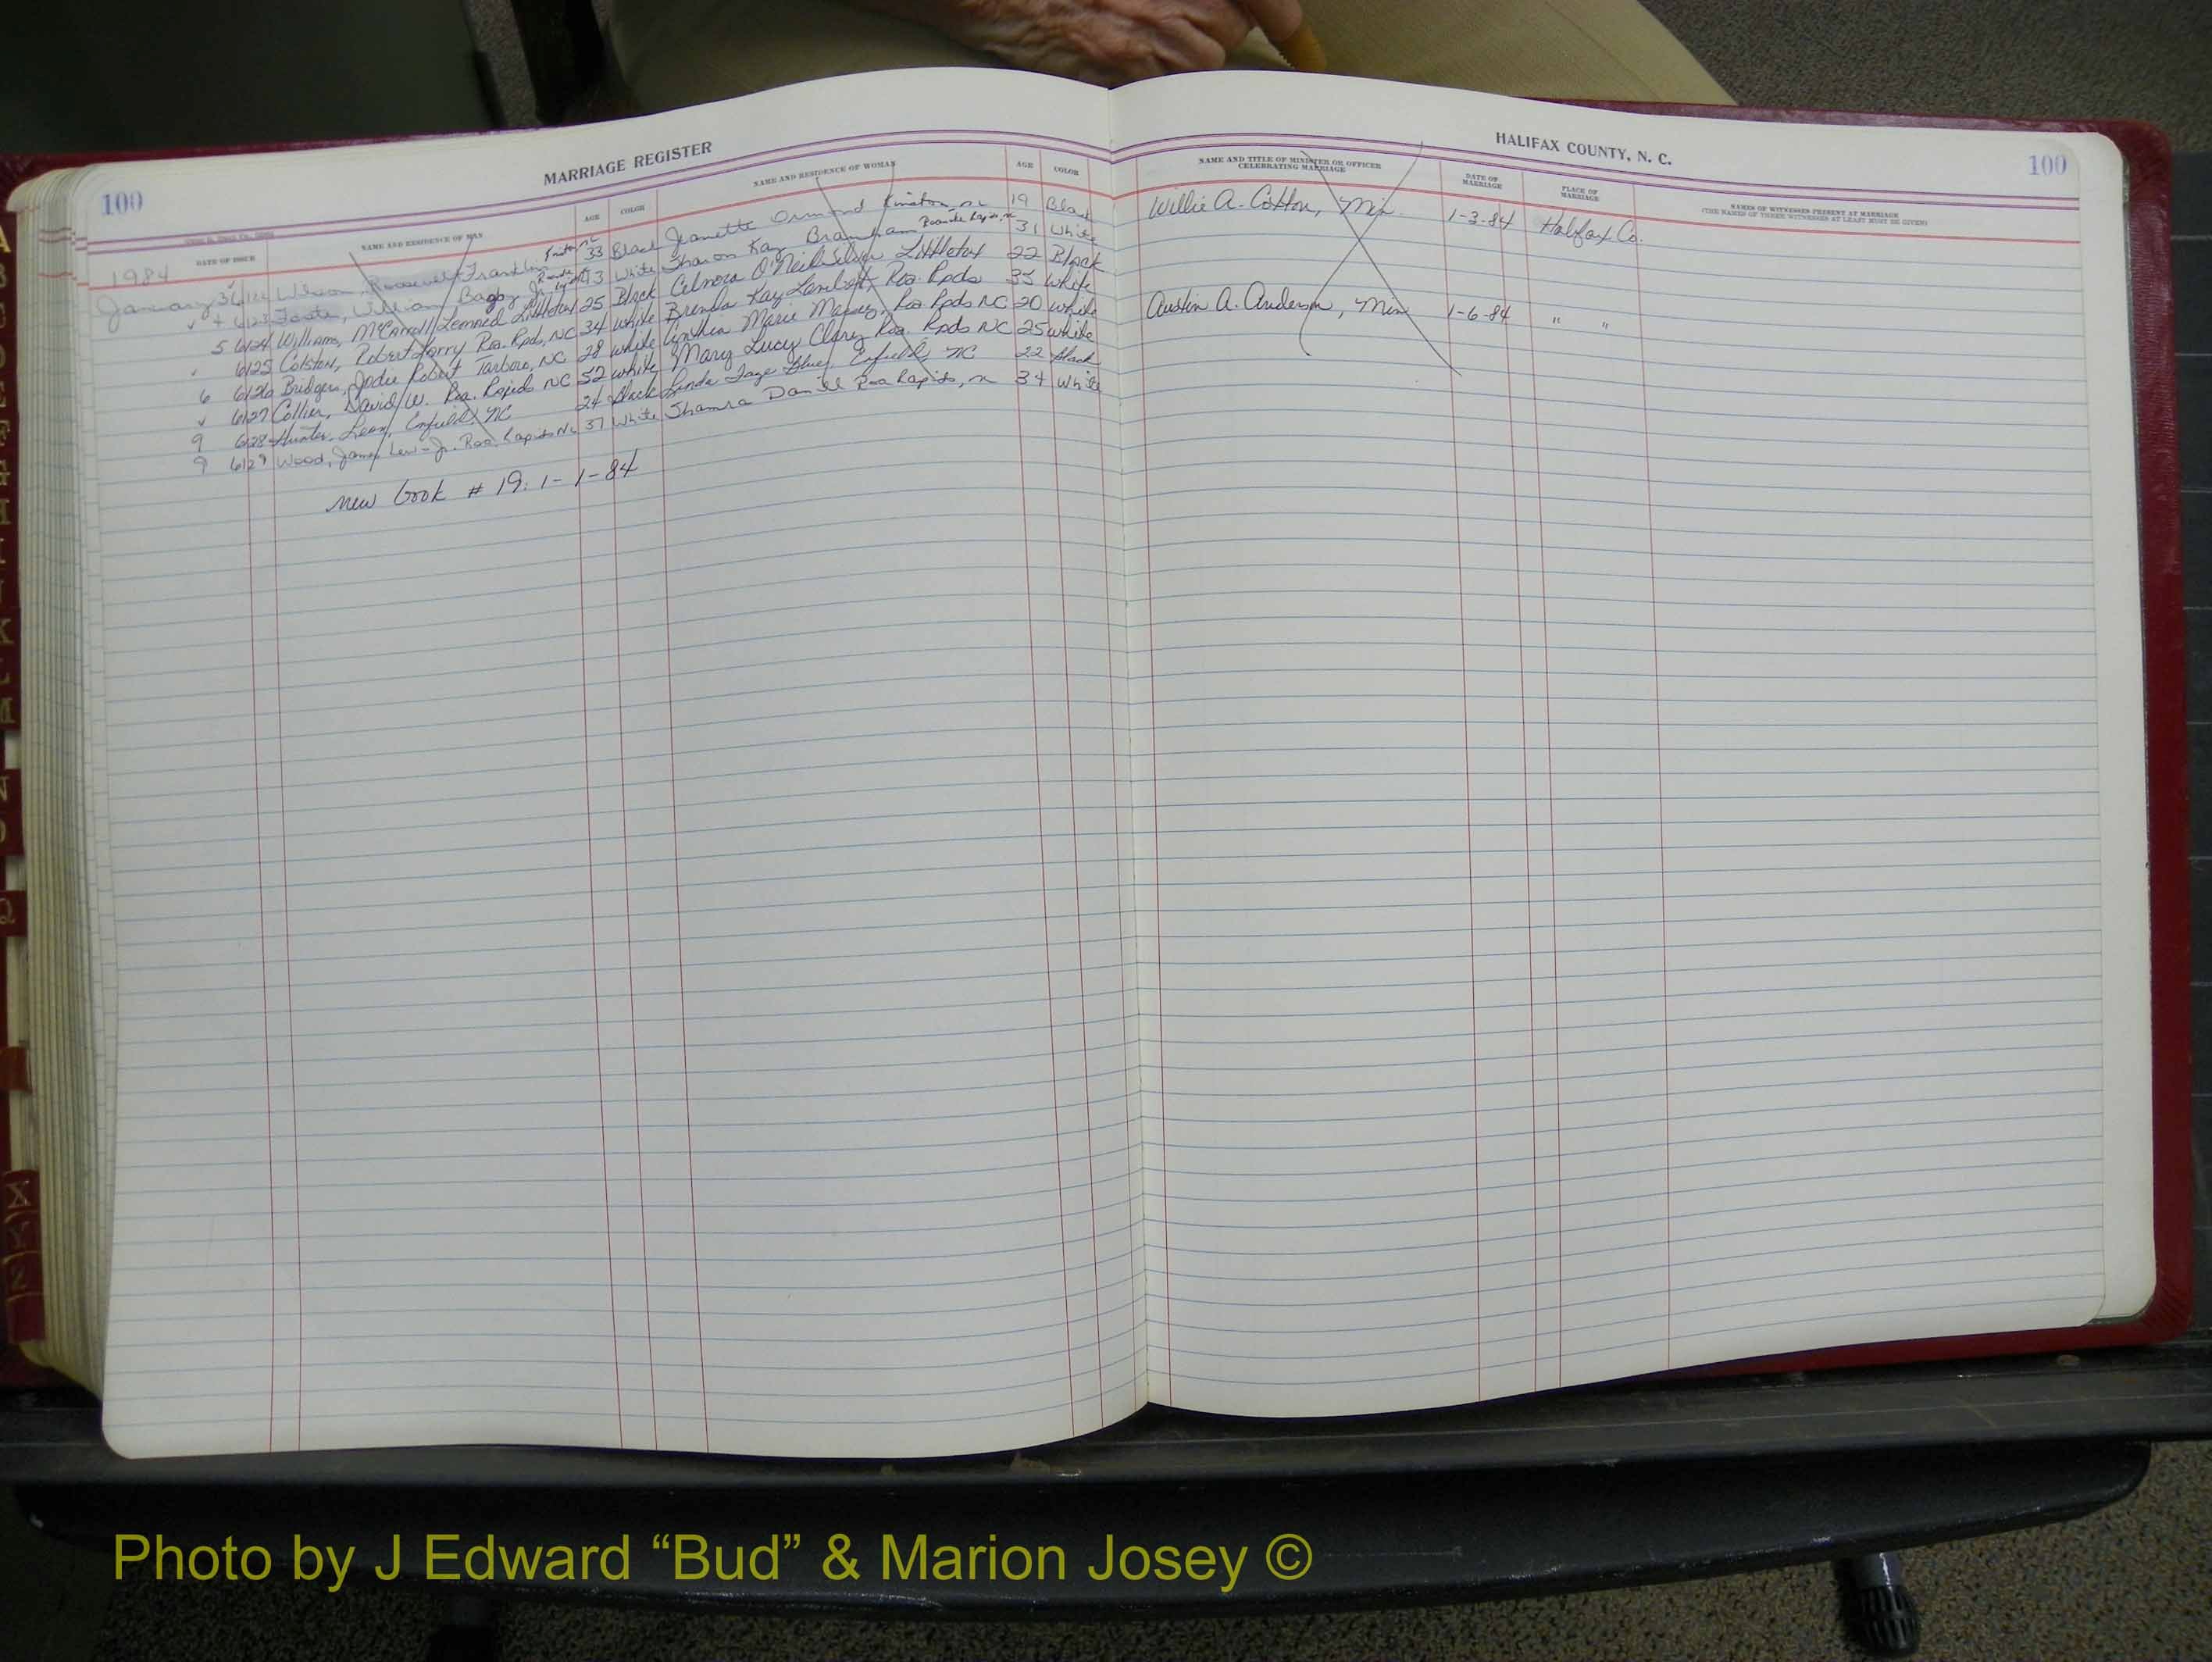 MARRIAGE REGISTER
HALIFAX COUNTY, N. C.
100
100
DATE OF ISSUE
NAME AND RESIDENCE OF MAN
AGE
COLOR
NAME AND RESIDENCE OF WOMAN
AGE
COLOR
NAME AND TITLE OF MINISTER OR OFFICER CELEBRATING MARRIAGE
DATE OF MARRIAGE
PLACE OF MARRIAGE
NAMES OF WITNESSES PRESENT AT MARRIAGE
(THE NAMES OF THREE WITNESSES AT LEAST MUST BE GIVEN)
1984
January 3 Wilson, Roosevelt Franklin 33 Black Jeanette Ormond Kinston, nc 19 Black Willie A. Cotton, Min. 1-3-84 Halifax Co.
6123 William Bagby Jr. 43 White Sharon Kay Roanoke Rapids, nc 31 White
5 6124 Williams, McCarroll Lemned Littleton 25 Black Celnora O'Neil Silver Littleton 22 Black
6125 Colston, Robert Larry Roa. Rpds, NC 34 white Brenda Kay Roa. Rpds 35 white Austin A. Anderson, Min 1-6-84 " "
6 6126 Bridgers, Jodie Robert Tarboro, NC 28 white Cynthia Marie Roa Rpds NC 20 white
6127 Collier, David W. Roa. Rapids NC 52 white Mary Lucy Clary Roa. Rpds NC 25 white
9 6128 Hunter, Leon, Enfield, NC 24 Black Linda Faye Enfield, NC 22 Black
9 6129 Wood, James Lew- Jr. Roa. Rapids Nc 37 White Thamra Daniel Roa Rapids, nc 34 White
new book # 19: 1-1-84
A
M
N
Q
X
Z
Photo by J Edward “Bud” & Marion Josey ©